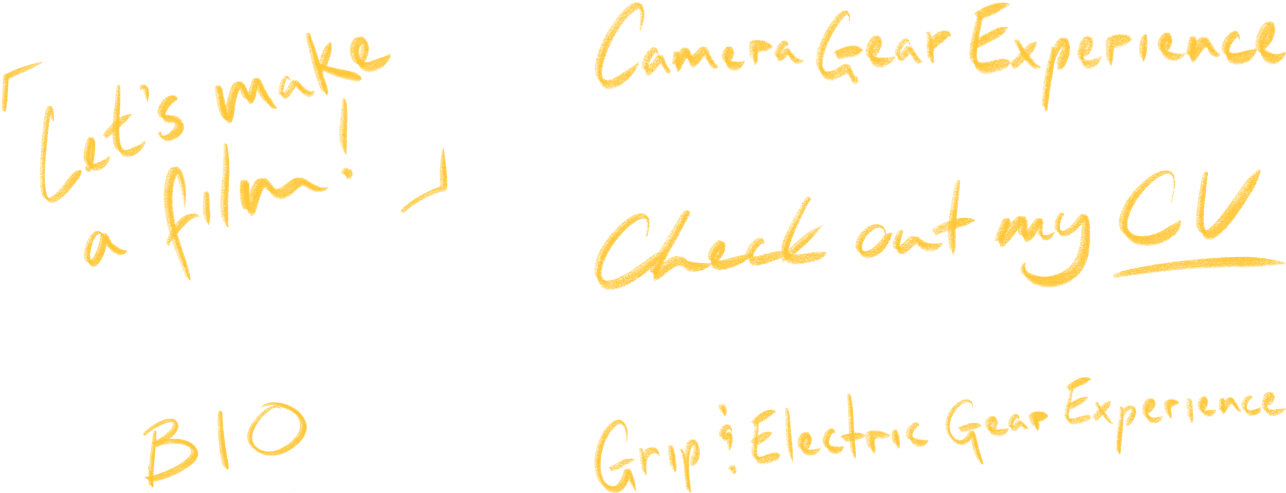 「Let's make
a film!」
Camera Gear Experience
Check out my CV
BIO
Grip & Electric Gear Experience